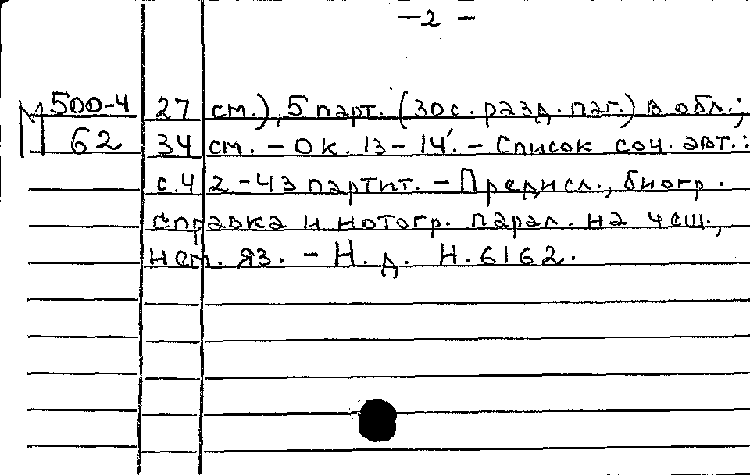 -2-
М 500-4 27 см.), 5 парт. (30 с. разд. паг.) в обл.;
62 34 см. - Ок. 13-14'. - Список соч. авт.:
с. 42-43 партит. - Предисл., биогр.
справка и нотогр. парал. на чеш.,
нем. яз. - Н. д. Н. 6162.